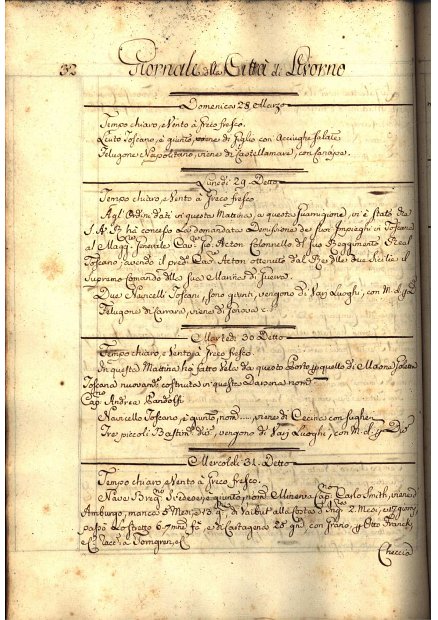 32 Giornale della Città di Livorno
Domenica 28 Marzo
Tempo chiaro, e Vento à Greco fresco.
Leuto Toscano, è giunto, viene di Giglio con Acciughe salate
Felugone Napolitano, viene di Castellamare, con Canapa.
Lunedi 29 Detto
Tempo chiaro, e Vento à Greco fresco
Agl' Ordini dati in questa Mattina, a questa Guarnigione, vi è stato che
S.A.R. hà concesso la domandata Demissione dei suoi Impieghi in Toscana
al Magg. Generale Cav. Gio. Acton Colonnello del suo Reggimento Real
Toscano avendo il pred. Cav. Acton ottenuto dal Re delle due Sicilie il
Supremo comando della sua Marina di Guerra.
Due Navicelli Toscani, sono giunti, vengono di Varj Luoghi, con M. d. g. Dsi
Felugone di Carrara, viene di Genova c. s.
Martedi 30 Detto
Tempo chiaro, e Vento à Greco fresco.
In questa Mattina hà fatto Vela da questo Porto p quello di Maone
Toscana nuovam. costruita in questa Darsena nom.
Cap. Andrea Pandolfi
Navicello Toscano, è giunto, nom ...., viene di Cecina con sughero
Tre piccoli Bastim. di, vengono di Varj Luoghi, con M. d. g. Dsi
Mercoledi 31 Detto
Tempo chiaro e Vento à Greco fresco.
Nave Svedese, è giunta, nom. Minerva Cap. Carlo Smith, viene d'
Amburgo, manca 5 Mesi, e 13 g. di Ing. 2 Mesi, e 17 giorni,
passò lo stretto 6 fà, e di Cartagena 25 gni con Grano, p Otto Franck,
e C. racc. a Torngren, e C.
Checcia